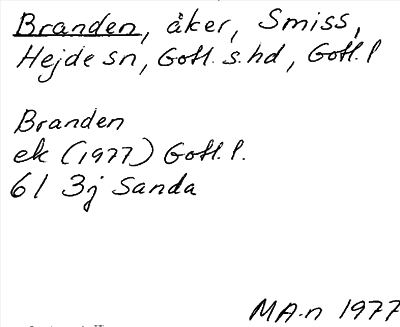 Branden, åker, Smiss,
Hejde sn, Gotl. s. hd, Gotl. l
Branden
ek (1977) Gotl. l.
6I 3j Sanda
MA-n 1977